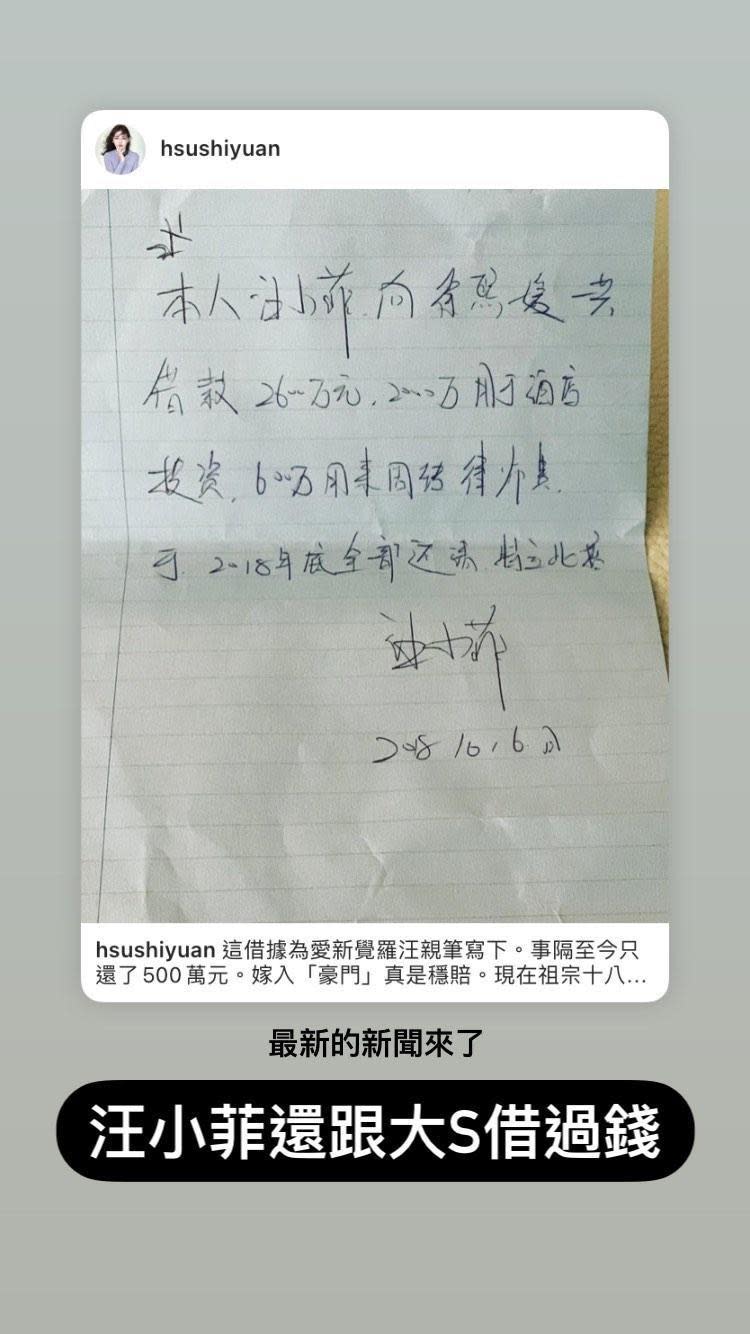 hsushiyuan
本人汪小菲.向徐熙媛共
借款2600万元,2000万用于酒店
投资,600万用来周转律师费.
于2018年底全部还清.特立此据
汪小菲
2018 10.6日
hsushiyuan 這借據為愛新覺羅汪親筆寫下。事隔至今只
還了500萬元。嫁入「豪門」真是穩賠。現在祖宗十八...
最新的新聞來了
汪小菲還跟大S借過錢